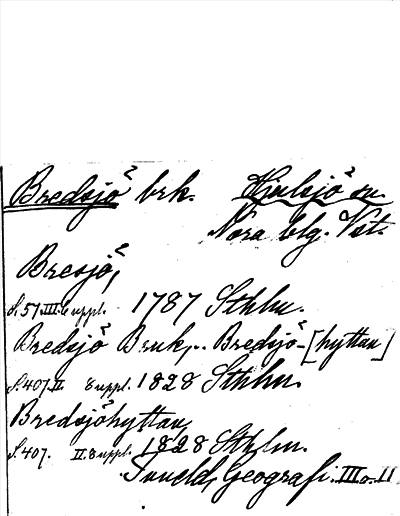 Bredsjö brk. Hjulsjö sn.
Nora blg. Vst.
Bresjö,
s. 57. III. 6 uppl. 1787 Sthlm.
Bredsjö Bruk, .. Bredsjö-[hyttan]
s. 407. II. 8 uppl. 1828 Sthlm.
Bredsjöhyttan,
s. 407. II. 8 uppl. 1828 Sthlm.
Tuneld, Geografi. III o. II